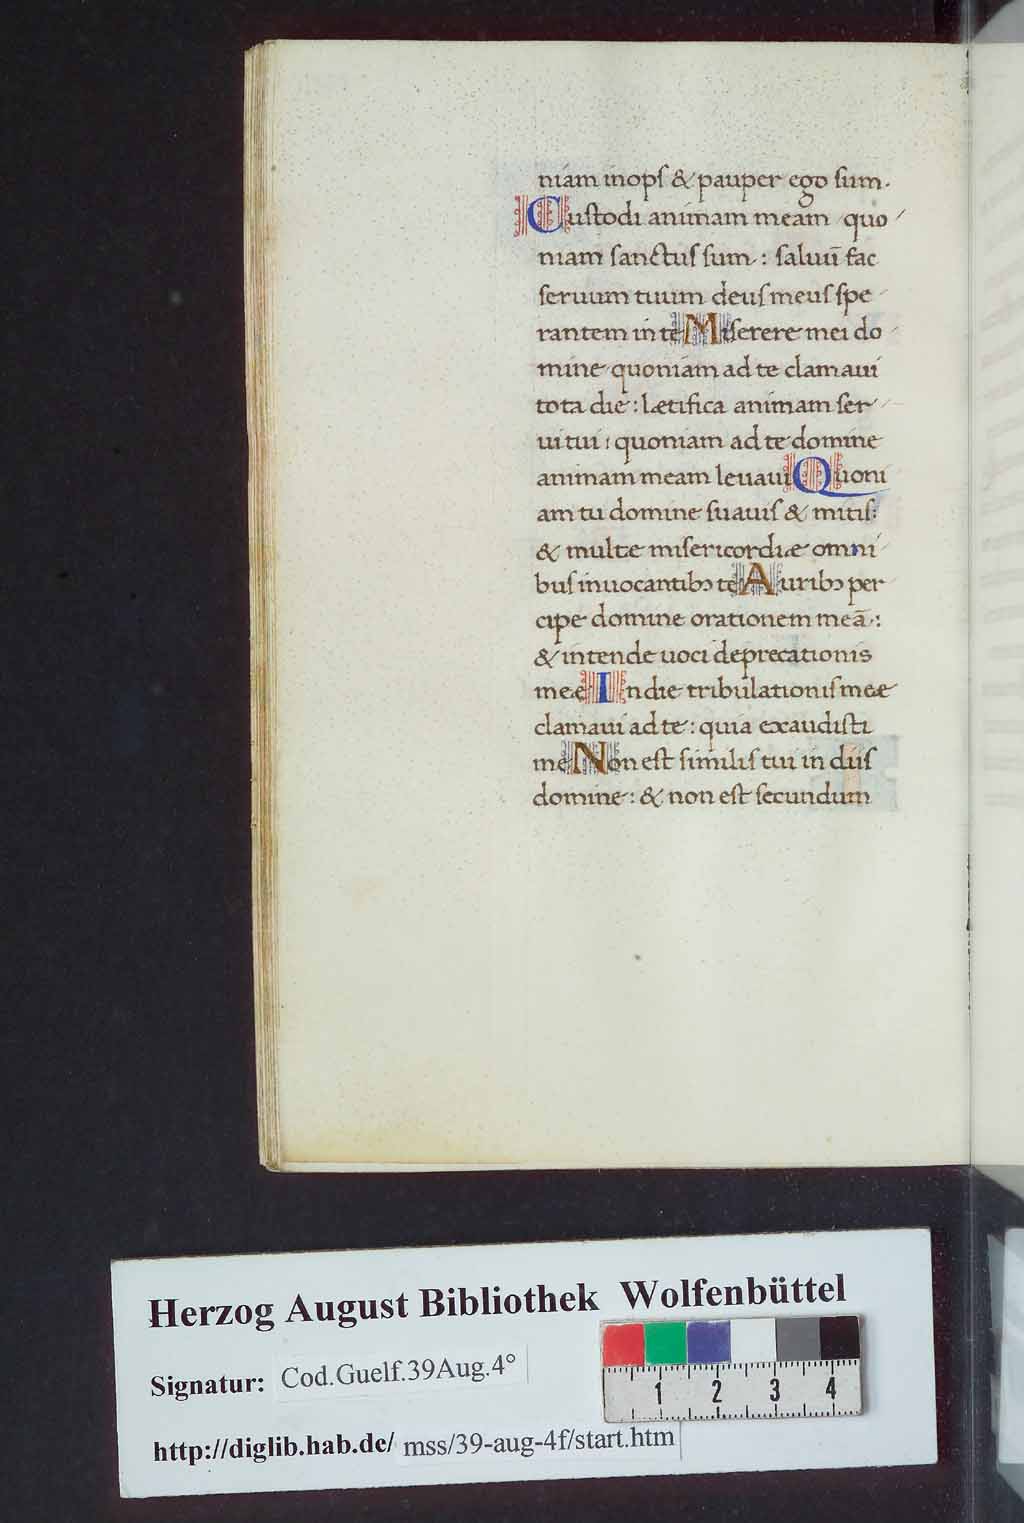 niam inops & pauper ego sum.
Custodi animam meam quo
niam sanctus sum : saluū fac
seruum tuum deus meus spe
rantem in te Miserere mei do
mine quoniam ad te clamaui
tota die : lætifica animam ser
ui tui : quoniam ad te domine
animam meam leuaui Quoni
am tu domine suauis & mitis :
& multe misericordiæ omni
bus inuocantibꝫ te Auribꝫ per
cipe domine orationem meā :
& intende uoci deprecationis
meæ In die tribulationis meæ
clamaui ad te : quia exaudisti
me Non est similis tui in diis
domine : & non est secundum
Herzog August Bibliothek Wolfenbüttel
Signatur: Cod.Guelf.39Aug.4°
1 2 3 4
http://diglib.hab.de/ mss/39-aug-4f/start.htm